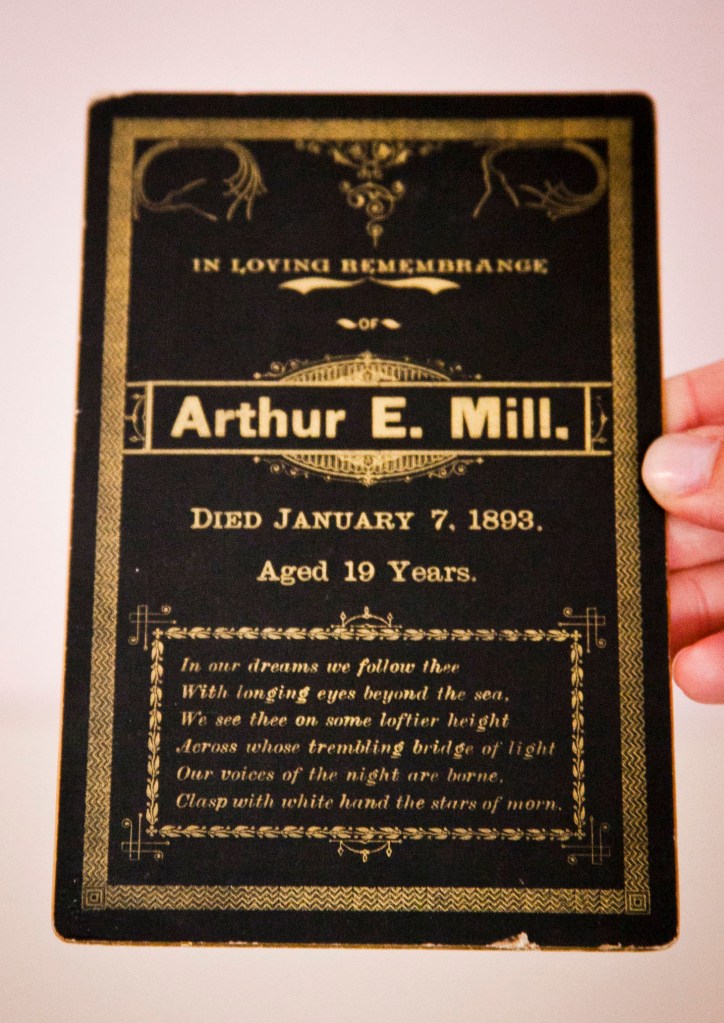 IN LOVING REMEMBRANCE
OF
Arthur E. Mill.
DIED JANUARY 7, 1893.
Aged 19 Years.
In our dreams we follow thee
With longing eyes beyond the sea,
We see thee on some loftier height
Across whose trembling bridge of light
Our voices of the night are borne,
Clasp with white hand the stars of morn.